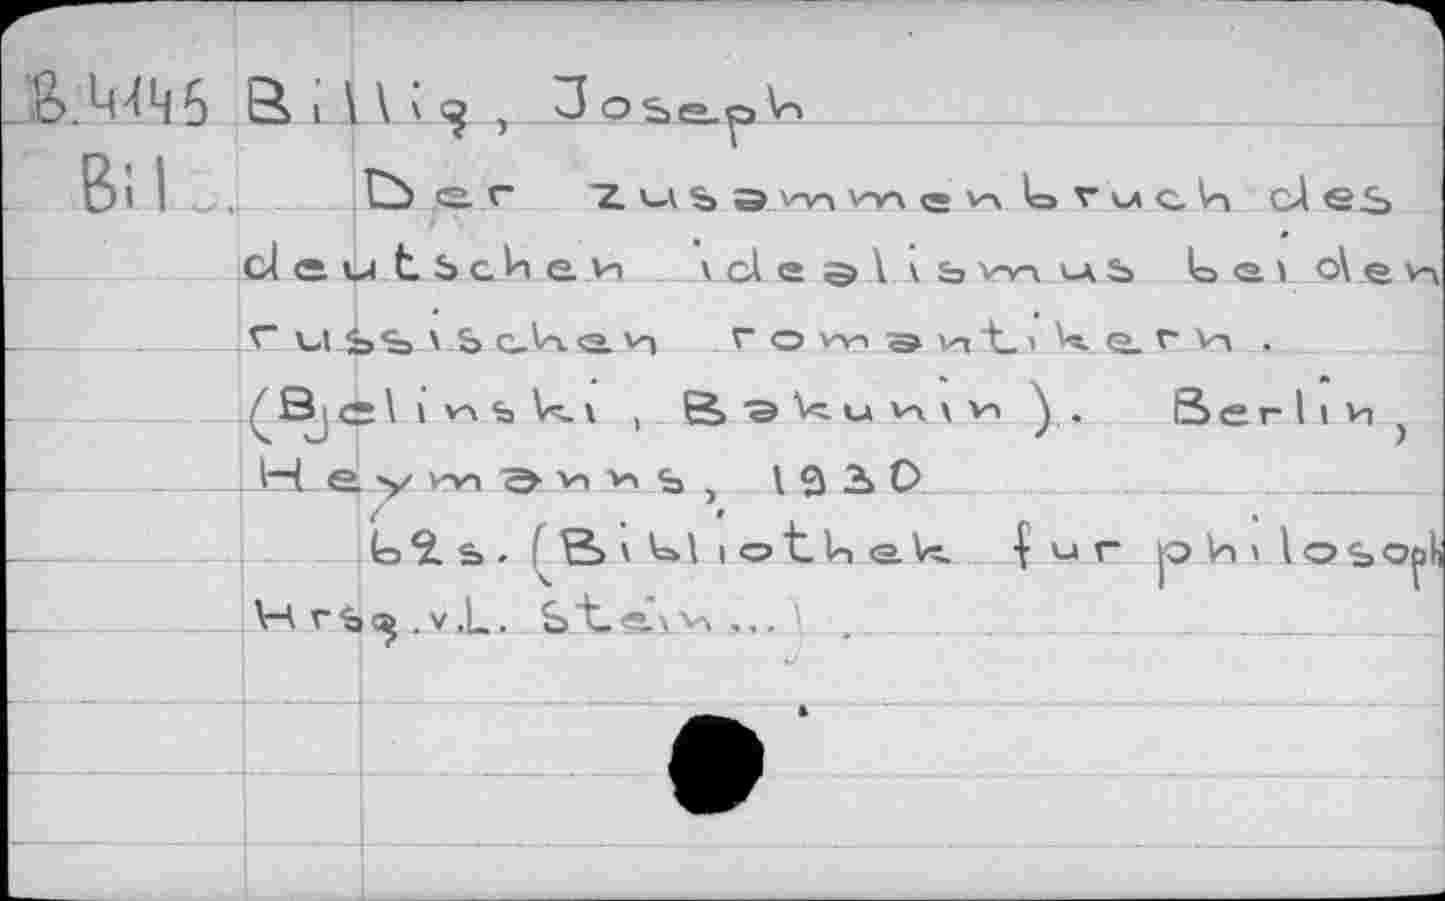 B.4146 Billig, Joseph
Bil... Der zusammenbruch des
deutschen idealismus bei den
russischen romantikern.
(Bjelinski, Bakunin). Berlin,
Heymanns, 1930
62 s. (Bibliothek fur philosoph
Hrsg.v.L. Stein...)